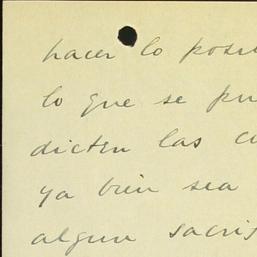 hacer lo posi
lo que se pu
dicten las c
ya bien sea
algun sacris